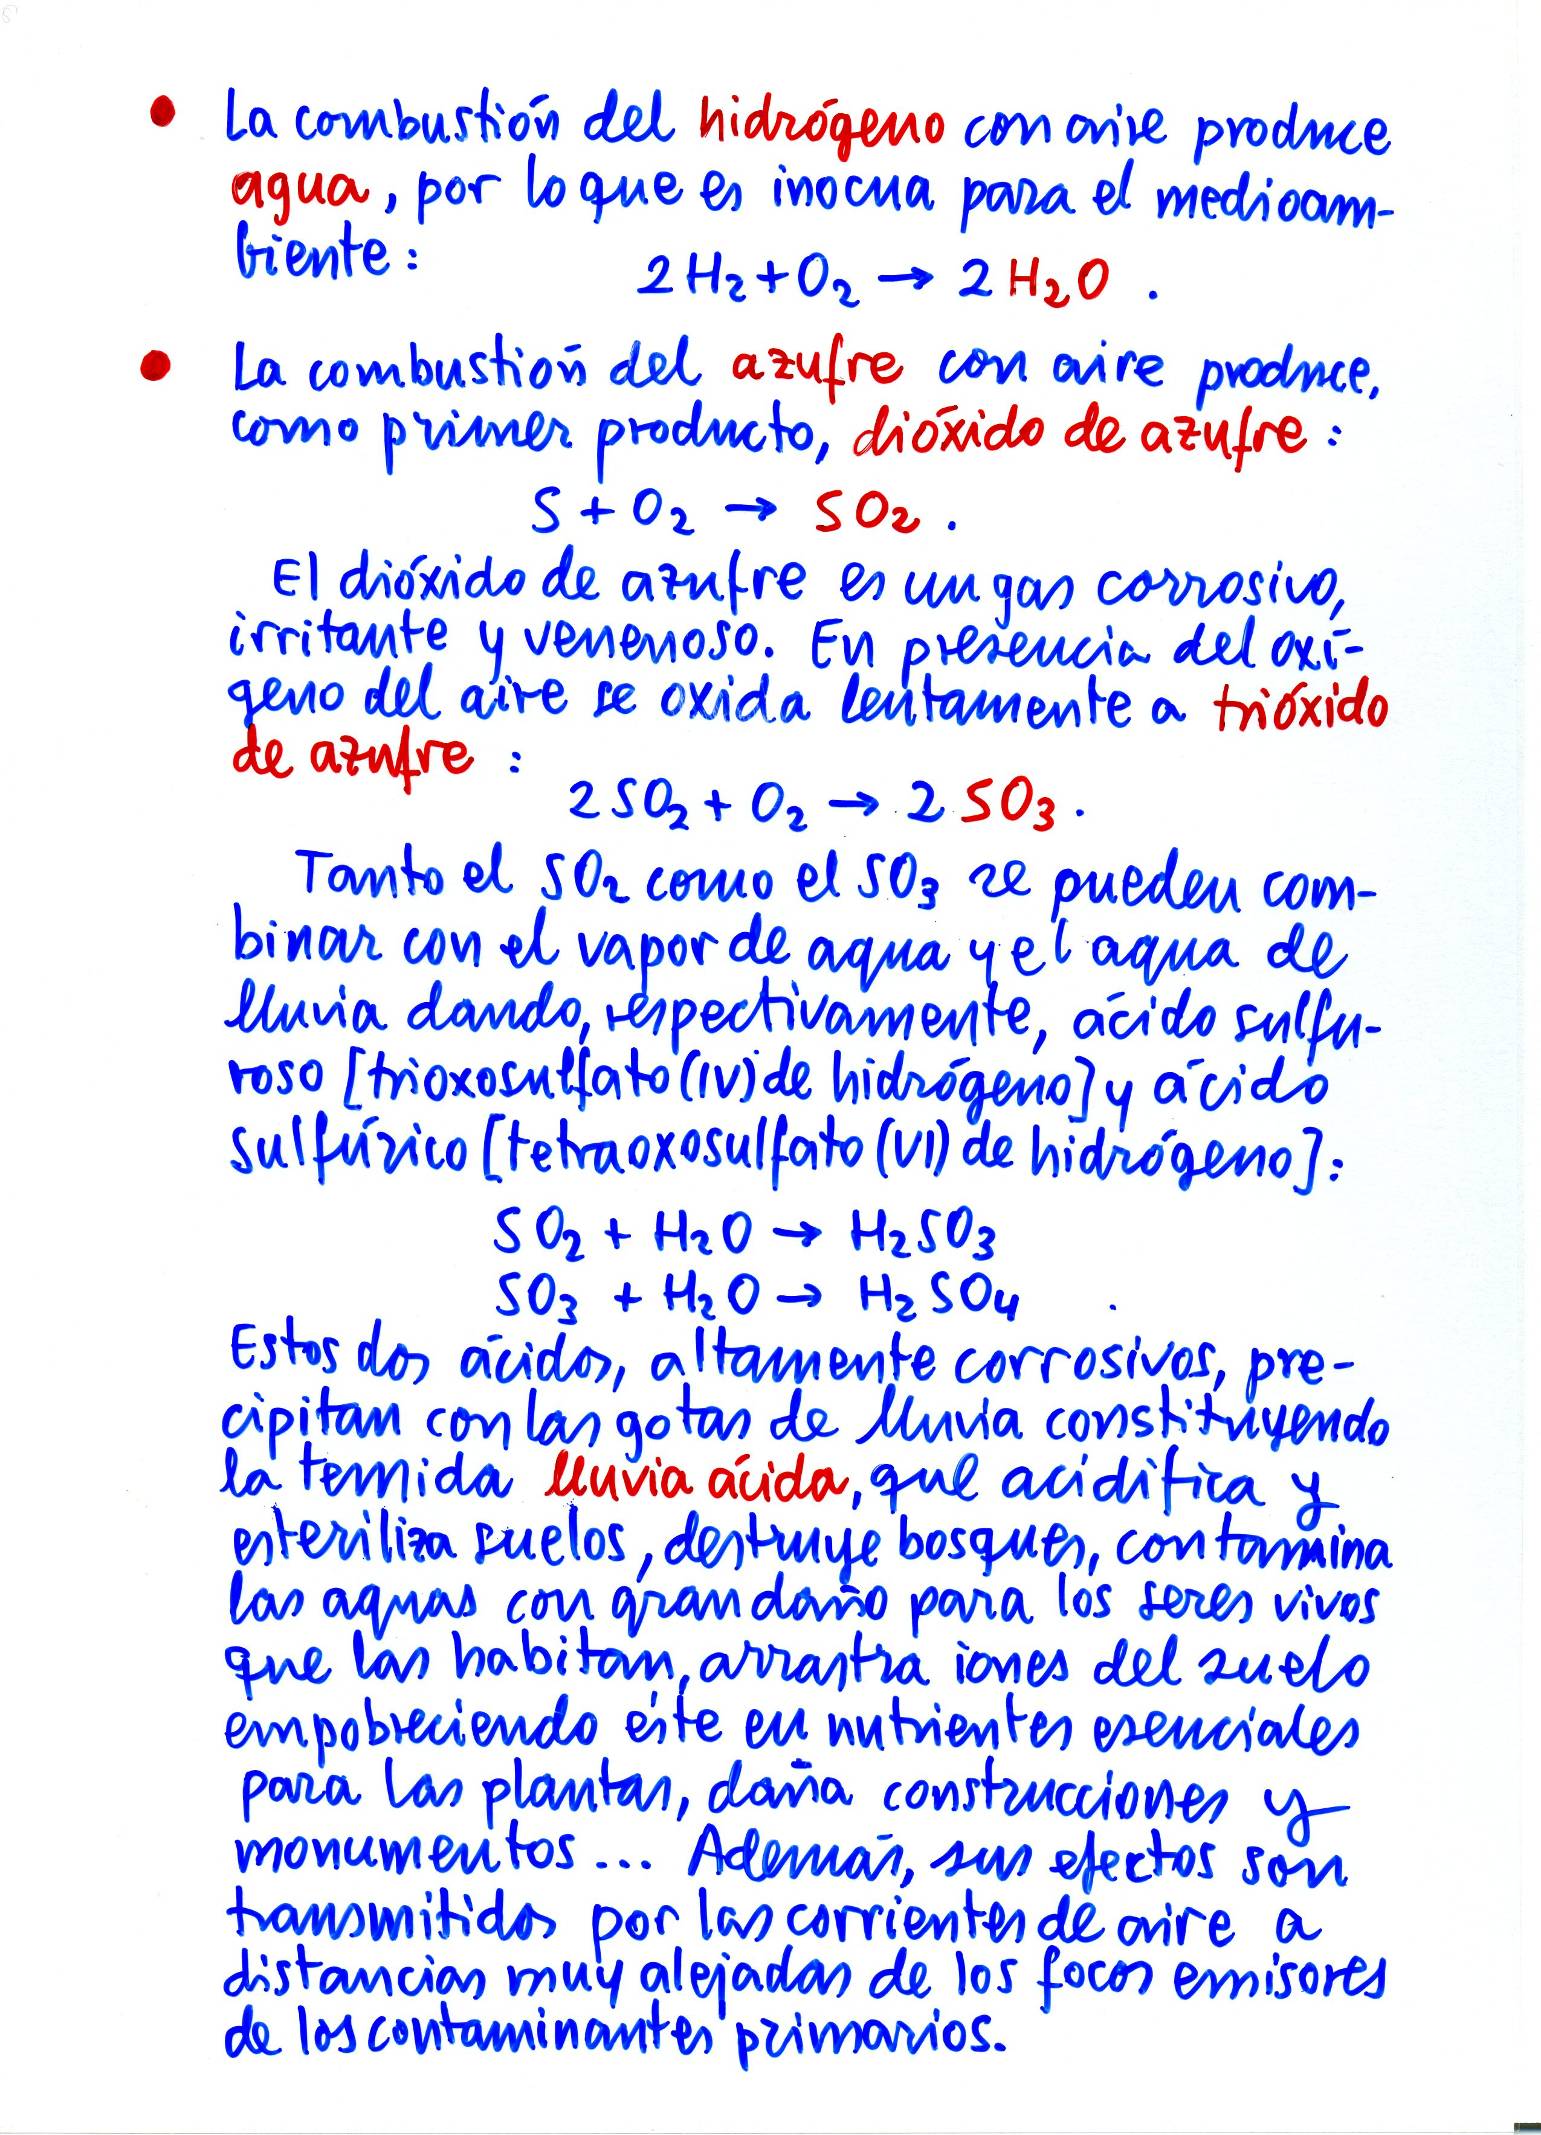 • La combustión del hidrógeno con aire produce
agua, por lo que es inocua para el medioam-
biente:
2H₂+O₂ → 2H₂O .
• La combustión del azufre con aire produce,
como primer producto, dióxido de azufre:
S + O₂ → SO₂ .
El dióxido de azufre es un gas corrosivo,
irritante y venenoso. En presencia del oxí-
geno del aire se oxida lentamente a trióxido
de azufre :
2SO₂ + O₂ → 2 SO₃ .
Tanto el SO₂ como el SO₃ se pueden com-
binar con el vapor de agua y el agua de
lluvia dando, respectivamente, ácido sulfu-
roso [trioxosulfato (IV) de hidrógeno] y ácido
sulfúrico [tetraoxosulfato (VI) de hidrógeno]:
SO₂ + H₂O → H₂SO₃
SO₃ + H₂O → H₂SO₄ .
Estos dos ácidos, altamente corrosivos, pre-
cipitan con las gotas de lluvia constituyendo
la temida lluvia ácida, que acidifica y
esteriliza suelos, destruye bosques, contamina
las aguas con gran daño para los seres vivos
que las habitan, arrastra iones del suelo
empobreciendo éste en nutrientes esenciales
para las plantas, daña construcciones y
monumentos... Además, sus efectos son
transmitidos por las corrientes de aire a
distancias muy alejadas de los focos emisores
de los contaminantes primarios.